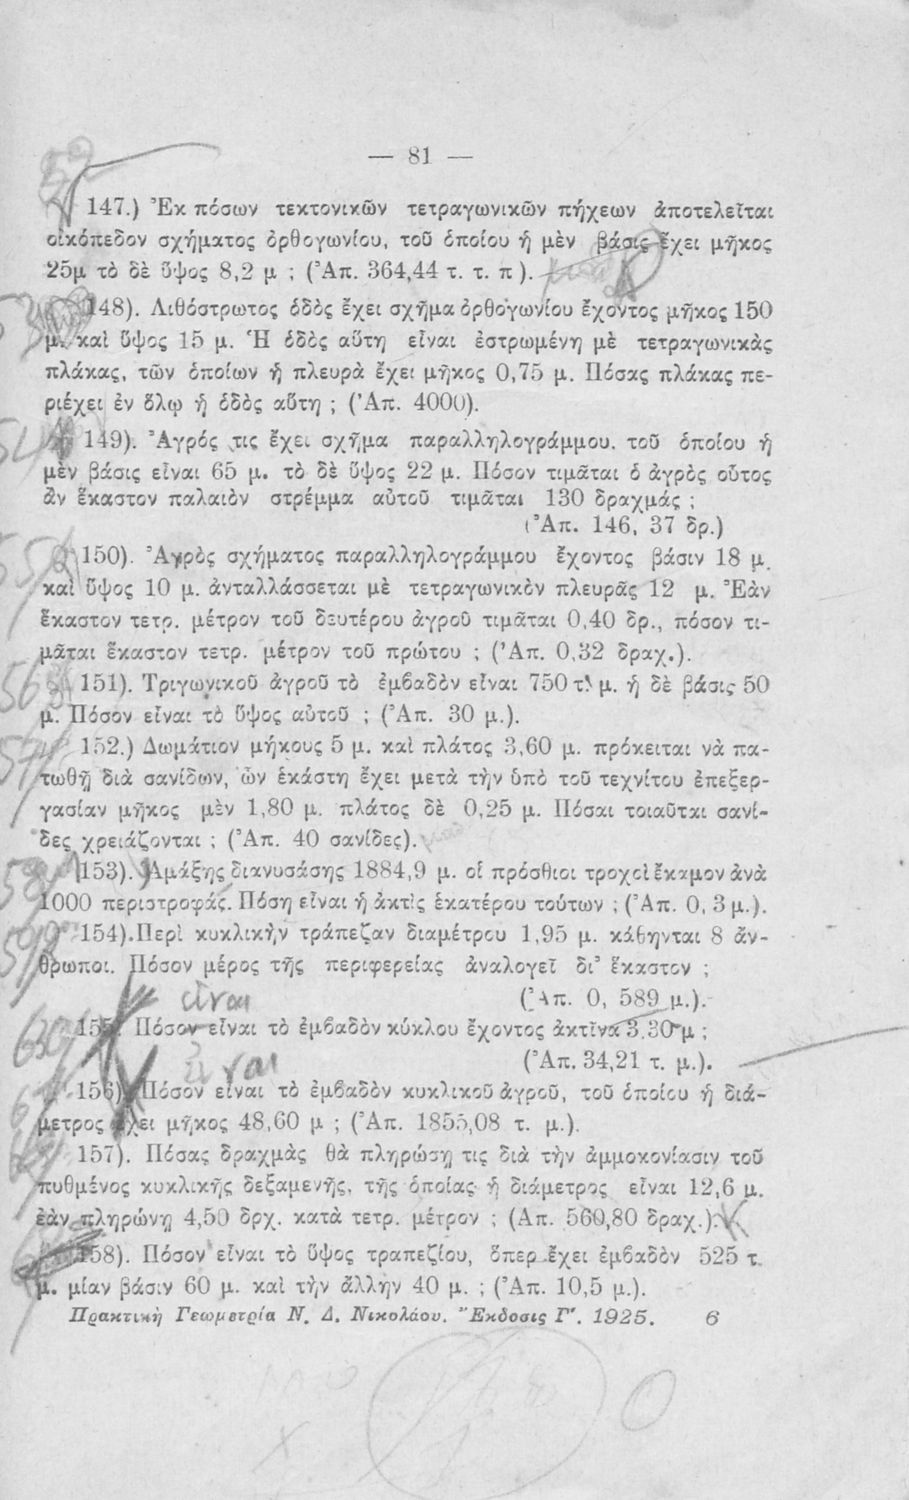 — 81 —
147.) Ἐκ πόσων τεκτονικῶν τετραγωνικῶν πήχεων ἀποτελεῖται
οἰκόπεδον σχήματος ὀρθογωνίου, τοῦ ὁποίου ἡ μὲν βάσις ἔχει μῆκος
25μ τὸ δὲ ὕψος 8,2 μ ; (Ἀπ. 364,44 τ. τ. π).
148). Λιθόστρωτος ὁδὸς ἔχει σχῆμα ὀρθογωνίου ἔχοντος μῆκος 150
μ. καὶ ὕψος 15 μ. Ἡ ὁδὸς αὕτη εἶναι ἐστρωμένη μὲ τετραγωνικὰς
πλάκας, τῶν ὁποίων ἡ πλευρὰ ἔχει μῆκος 0,75 μ. Πόσας πλάκας πε-
ριέχει ἐν ὅλῳ ἡ ὁδὸς αὕτη ; (Ἀπ. 4000).
149). Ἀγρός τις ἔχει σχῆμα παραλληλογράμμου. τοῦ ὁποίου ἡ
μὲν βάσις εἶναι 65 μ. τὸ δὲ ὕψος 22 μ. Πόσον τιμᾶται ὁ ἀγρὸς οὗτος
ἂν ἕκαστον παλαιὸν στρέμμα αὐτοῦ τιμᾶται 130 δραχμάς ;
(Ἀπ. 146, 37 δρ.)
150). Ἀγρὸς σχήματος παραλληλογράμμου ἔχοντος βάσιν 18 μ.
καὶ ὕψος 10 μ. ἀνταλλάσσεται μὲ τετραγωνικὸν πλευρᾶς 12 μ. Ἐὰν
ἕκαστον τετρ. μέτρον τοῦ δευτέρου ἀγροῦ τιμᾶται 0,40 δρ., πόσον τι-
μᾶται ἕκαστον τετρ. μέτρον τοῦ πρώτου ; (Ἀπ. 0,32 δραχ.).
151). Τριγωνικοῦ ἀγροῦ τὸ ἐμβαδὸν εἶναι 750 τ. μ. ἡ δὲ βάσις 50
μ. Πόσον εἶναι τὸ ὕψος αὐτοῦ ; (Ἀπ. 30 μ.).
152.) Δωμάτιον μήκους 5 μ. καὶ πλάτος 3,60 μ. πρόκειται νὰ πα-
τωθῇ διὰ σανίδων, ὧν ἑκάστη ἔχει μετὰ τὴν ὑπὸ τοῦ τεχνίτου ἐπεξερ-
γασίαν μῆκος μὲν 1,80 μ. πλάτος δὲ 0,25 μ. Πόσαι τοιαῦται σανί-
δες χρειάζονται ; (Ἀπ. 40 σανίδες).
153). Ἁμάξης διανυσάσης 1884,9 μ. οἱ πρόσθιοι τροχοὶ ἔκαμον ἀνὰ
1000 περιστροφάς. Πόση εἶναι ἡ ἀκτὶς ἑκατέρου τούτων ; (Ἀπ. 0, 3 μ.).
154).Περὶ κυκλικὴν τράπεζαν διαμέτρου 1,95 μ. κάθηνται 8 ἄν-
θρωποι. Πόσον μέρος τῆς περιφερείας ἀναλογεῖ δι' ἕκαστον ;
(Ἀπ. 0, 589 μ.).
εἶναι
155. Πόσον εἶναι τὸ ἐμβαδὸν κύκλου ἔχοντος ἀκτῖνα 3,30 μ ;
(Ἀπ. 34,21 τ. μ.).
εἶναι
156) Πόσον εἶναι τὸ ἐμβαδὸν κυκλικοῦ ἀγροῦ, τοῦ ὁποίου ἡ διά-
μετρος ἔχει μῆκος 48,60 μ ; (Ἀπ. 1855,08 τ. μ.).
157). Πόσας δραχμὰς θὰ πληρώσῃ τις διὰ τὴν ἀμμοκονίασιν τοῦ
πυθμένος κυκλικῆς δεξαμενῆς, τῆς ὁποίας ἡ διάμετρος εἶναι 12,6 μ.
ἐὰν πληρώνῃ 4,50 δρχ. κατὰ τετρ. μέτρον ; (Ἀπ. 560,80 δραχ.).
158). Πόσον εἶναι τὸ ὕψος τραπεζίου, ὅπερ ἔχει ἐμβαδὸν 525 τ.
μ. μίαν βάσιν 60 μ. καὶ τὴν ἄλλην 40 μ. ; (Ἀπ. 10,5 μ.).
Πρακτικὴ Γεωμετρία Ν. Δ. Νικολάου. Ἔκδοσις Γ'. 1925. 6